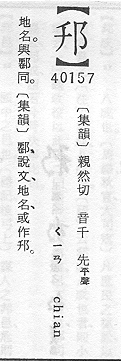 40157
〔集韻〕親然切 音千 先平聲
ㄑㄧㄢ chian
地名。與同。〔集韻〕、說文、地名、或作。